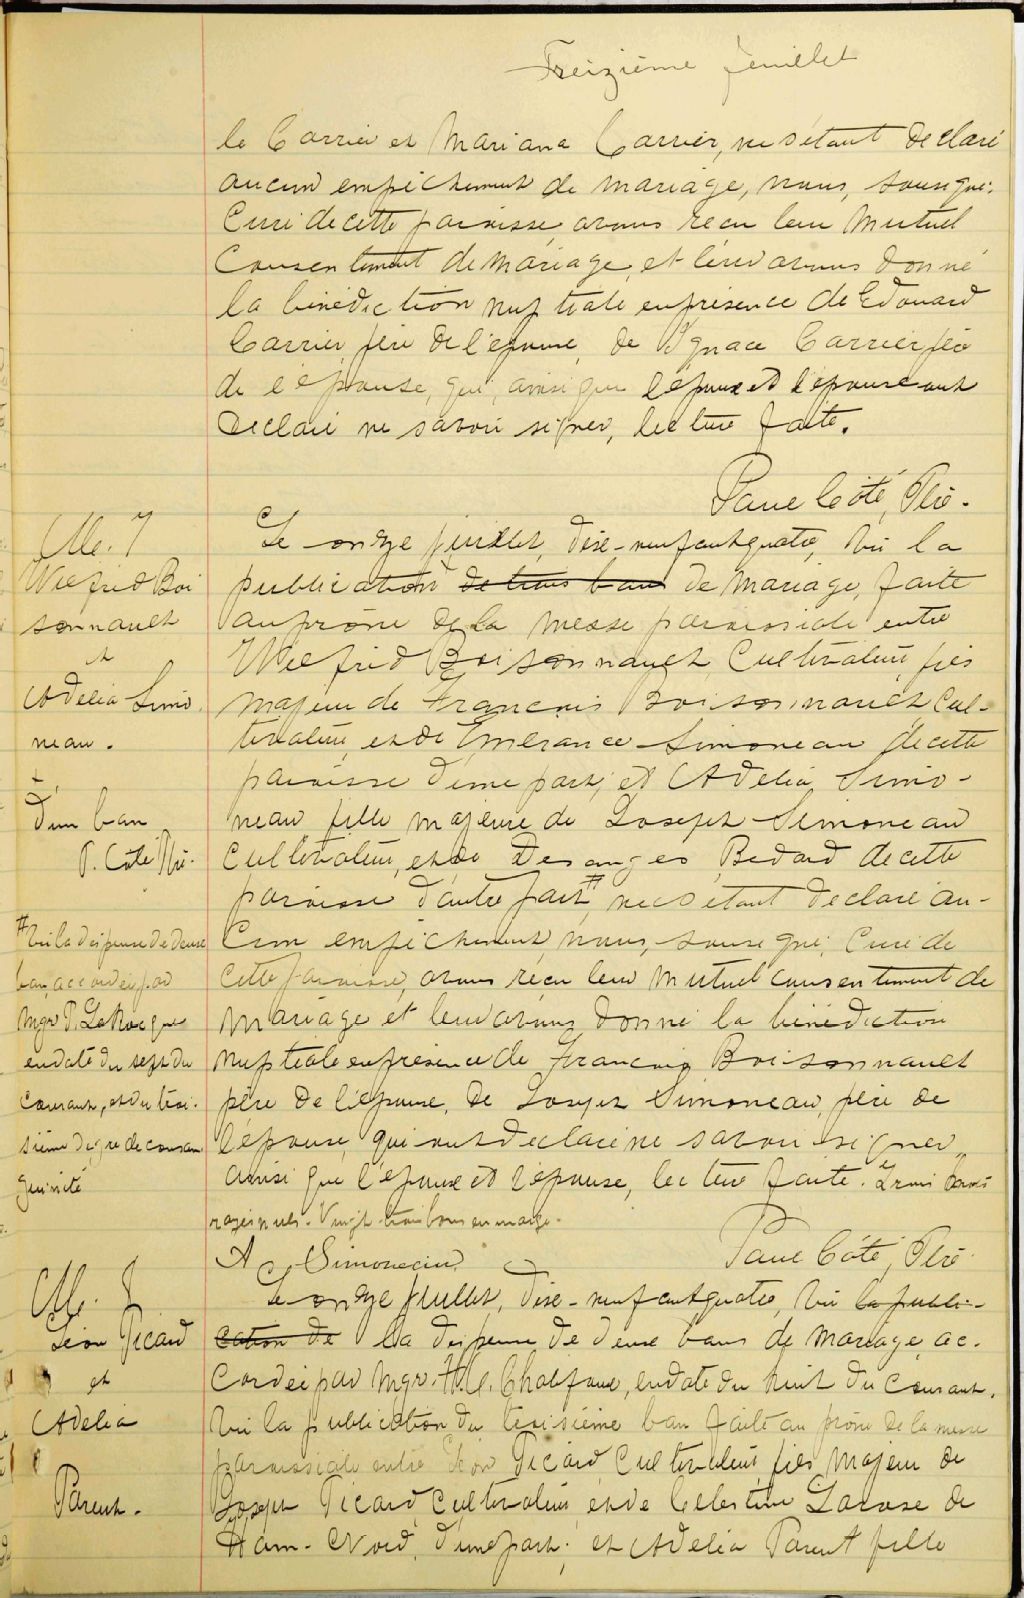 Treizième feuillet
le Carrier et Mariana Carrier, ne s'étant déclaré
aucun empêchement de mariage, nous, soussigné,
Curé de cette paroisse, avons reçu leur mutuel
Consentement de mariage, et leur avons donné
la bénédiction nuptiale en présence de Edouard
Carrier, père de l'époux, de Ignace Carrier père
de l'épouse, qui, ainsi que l'époux et l'épouse ont
déclaré ne savoir signer, lecture faite.
Paul Côté, Ptre.
M. 7
Wilfrid Boi
sonnault
et
Adelia Simo
neau.
+
d'un ban
P. Côté Ptre.
# Vu la dispense de deux
bans accordée par
Mgr P. LaRocque
en date du sept du
courant, et du troi-
sième degré de consan
guinité
Le onze juillet, dix-neuf cent quatre, vu la
publication + de trois bans de mariage, faite
au prône de la messe paroissiale entre
Wilfrid Boisonnault, Cultivateur, fils
majeur de François Boisonnault Cul-
tivateur, et de Emerance Simoneau de cette
paroisse d'une part; et Adelia Simo-
neau fille majeure de Joseph Simoneau
Cultivateur, et de Desanges Bedard de cette
paroisse d'autre part #, ne s'étant déclaré au-
cun empêchement, nous, soussigné, Curé de
cette paroisse, avons reçu leur mutuel consentement de
mariage et leur avons donné la bénédiction
nuptiale en présence de François Boisonnault
père de l'époux, de Joseph Simoneau, père de
l'épouse, qui ont déclaré ne savoir signer,
ainsi que l'époux et l'épouse, lecture faite. Trois mots
rayés nuls. Vingt-trois bons en marge.
A Simoneau
Paul Côté, Ptre
M. 8
Léon Picard
et
Adelia
Parent.
Le onze juillet, dix-neuf cent quatre, vu la publi-
cation de la dispense de deux bans de mariage, ac-
cordée par Mgr. H. O. Chalifoux, en date du huit du courant,
Vu la publication du troisième ban faite au prône de la messe
paroissiale entre Léon Picard, Cultivateur, fils majeur de
Joseph Picard, Cultivateur, et de Celestine Larose de
Ham-Nord, d'une part; et Adelia Parent fille